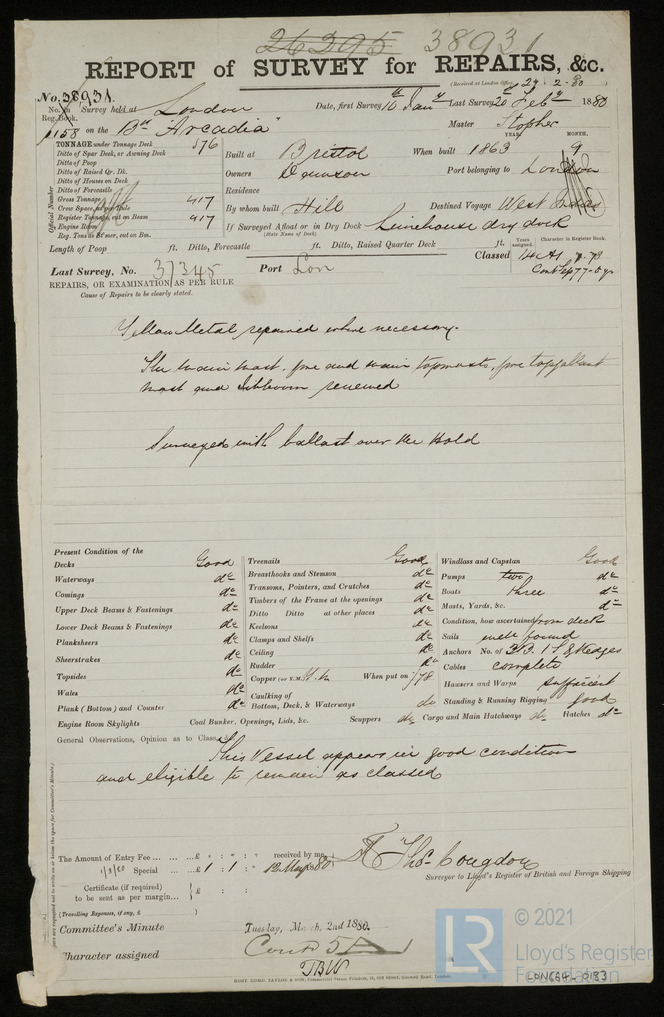 26295 38931
REPORT of SURVEY for REPAIRS, &c.
(Received at London Office, 27 - 2 - 80
No. 38931.
No. in Reg. Book. Survey held at London Date, first Survey 16th Jany Last Survey 20th Feby 1880
1158 on the Bk "Arcadia" Master Stopher
TONNAGE under Tonnage Deck 376
Ditto of Spar Deck, or Awning Deck
Ditto of Poop
Ditto of Raised Qr. Dk.
Ditto of Houses on Deck
Ditto of Forecastle
Gross Tonnage 417
Crew Space, as per Rule
Register Tonnage, cut on Beam 417
Engine Room
Reg. Tons as Steamer, cut on Bm.
Official Number
YEARS MONTH.
Built at Bristol When built 1863 9
Owners Port belonging to London
Residence
By whom built Hill Destined Voyage West Indies
If Surveyed Afloat or in Dry Dock Limehouse dry dock
(State Name of Dock)
Length of Poop ft. Ditto, Forecastle ft. Ditto, Raised Quarter Deck ft.
Years assigned. Character in Register Book.
Last Survey, No. 37345 Port Lon Classed 14 A1
Cont Sep 77 - 5 yr
REPAIRS, OR EXAMINATION AS PER RULE
Cause of Repairs to be clearly stated.
Yellow Metal repaired where necessary.
The main mast, fore and main topmasts, fore topgallant
mast and Jibboom renewed
Surveyed with ballast over the Hold
Present Condition of the
Decks Good
Waterways do
Comings do
Upper Deck Beams & Fastenings do
Lower Deck Beams & Fastenings do
Planksheers do
Sheerstrakes do
Topsides do
Wales do
Plank (Bottom) and Counter do
Engine Room Skylights
Treenails Good
Breasthooks and Stemson do
Transoms, Pointers, and Crutches do
Timbers of the Frame at the openings do
Ditto Ditto at other places do
Keelsons do
Clamps and Shelfs do
Ceiling do
Rudder do
Copper (or Y.M.) Y.M. When put on /78
Caulking of
Bottom, Deck, & Waterways do
Coal Bunker, Openings, Lids, &c. Scuppers do Cargo and Main Hatchways do Hatches do
Windlass and Capstan Good
Pumps two do
Boats three do
Masts, Yards, &c. do
Condition, how ascertained from deck
Sails well found
Anchors No. of 3B. 1 S & Kedges
Cables complete
Hawsers and Warps sufficient
Standing & Running Rigging good
General Observations, Opinion as to Class, &c.
This Vessel appears in good condition
and eligible to remain as classed
The Amount of Entry Fee ... £ : : received by me,
1/3/80 Special ... £1 : 1 : 12 May 1880
Certificate (if required) £ : :
to be sent as per margin...
(Travelling Expenses, if any, £ )
Thos. Congdon
Surveyor to Lloyd's Register of British and Foreign Shipping
Committee's Minute Tuesday, March, 2nd 1880.
Character assigned Contd 5 A1
TBW
LR
© 2021
Lloyd's Register
Foundation
LON664-0183